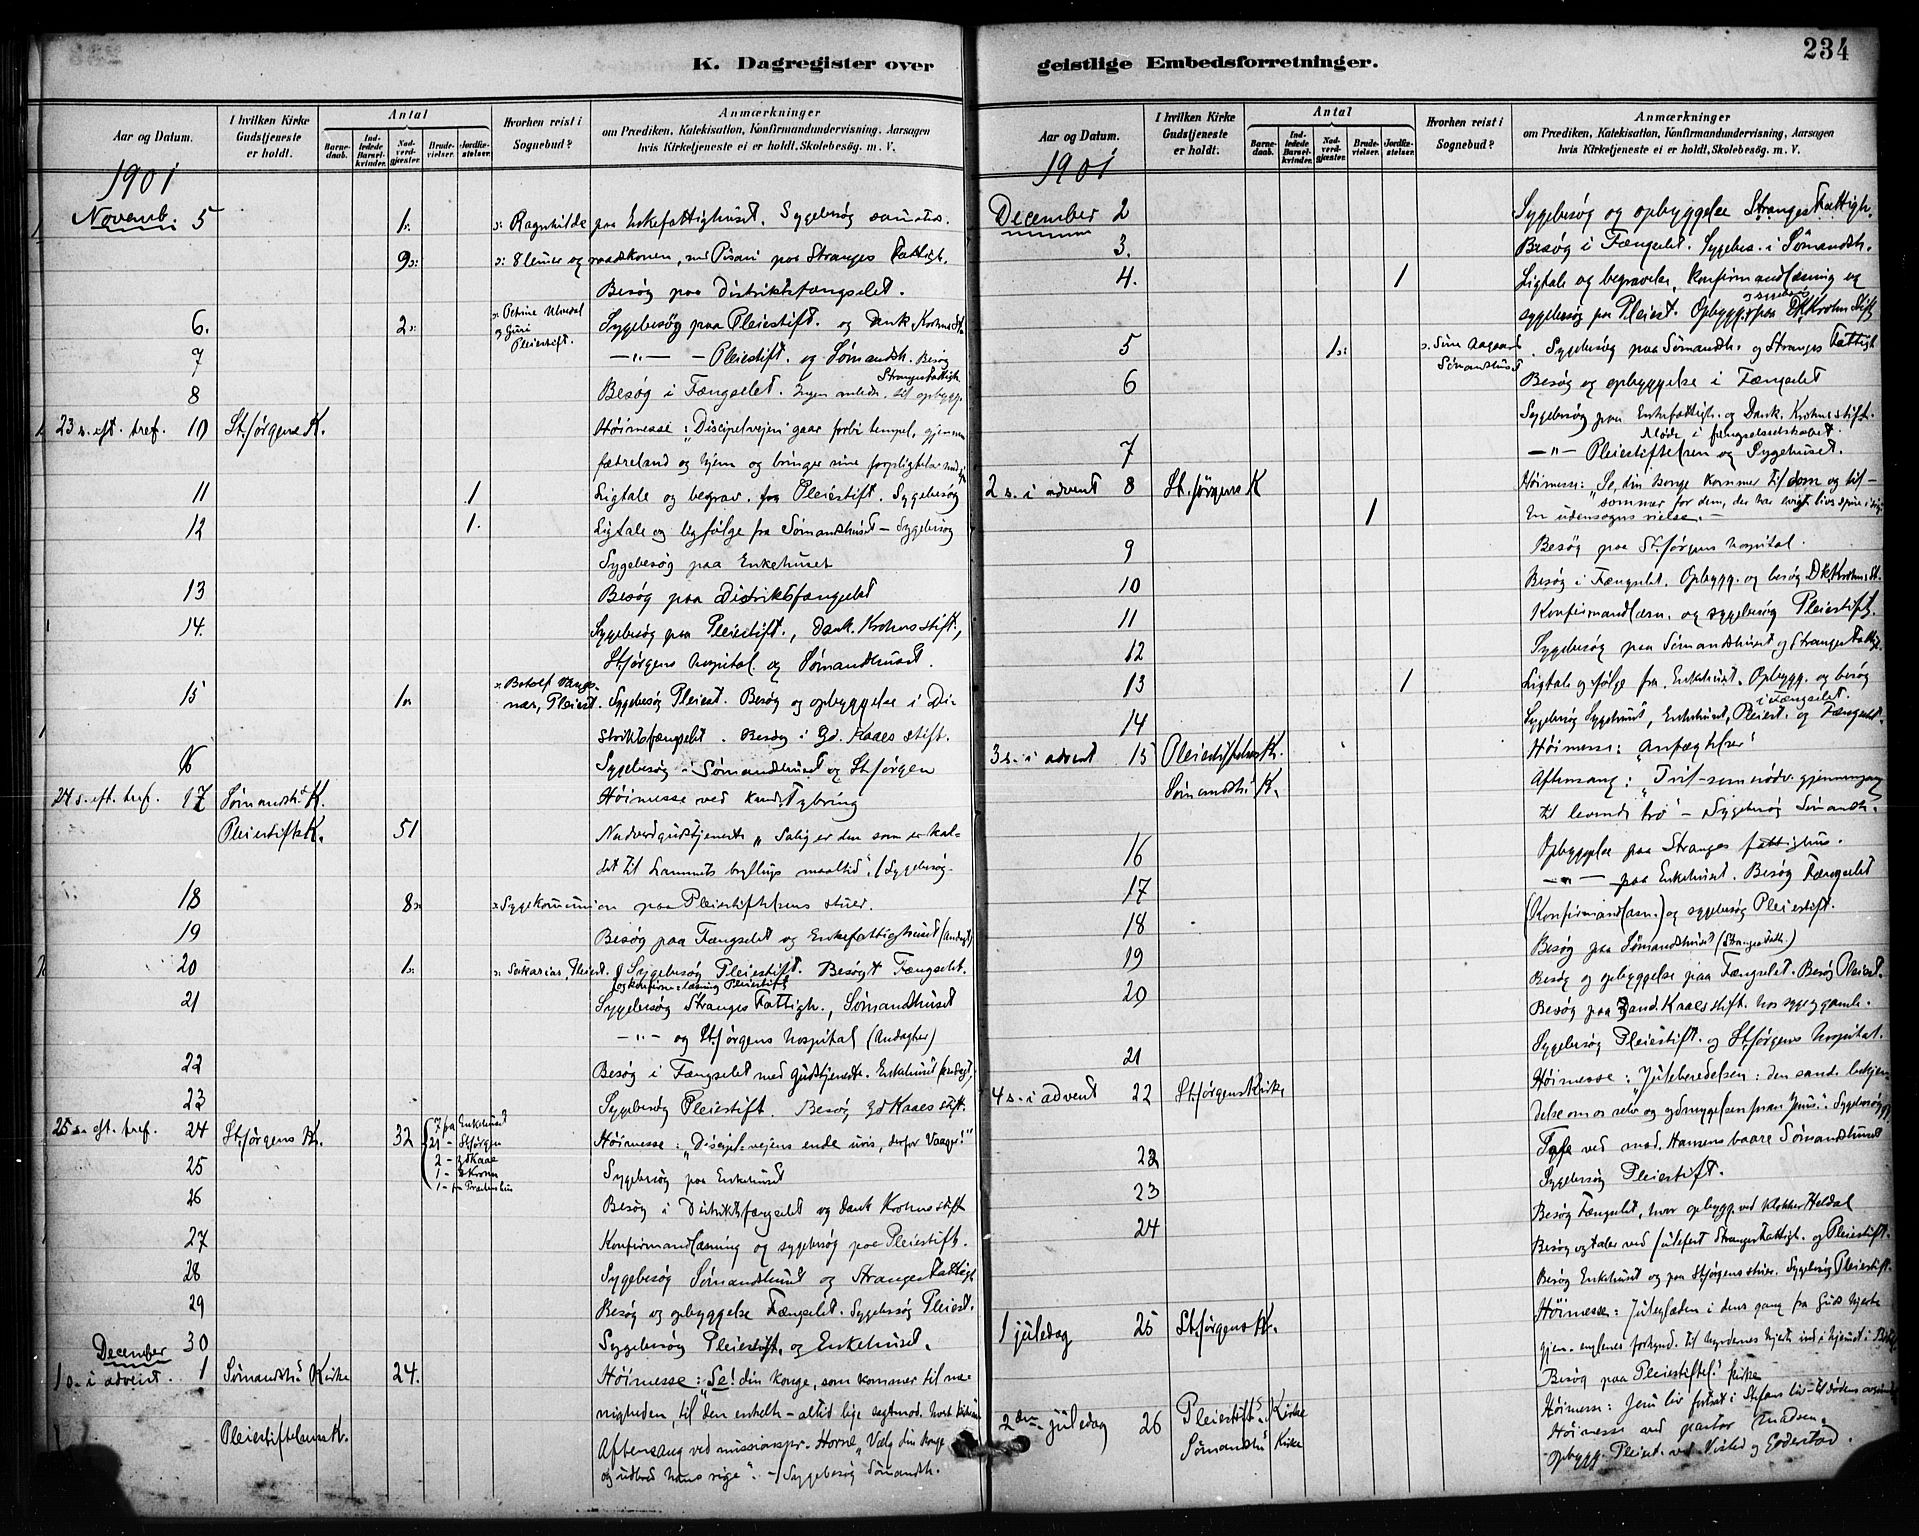 K. Dagregister over
Aar og Datum.
I hvilken Kirke Gudstjeneste er holdt.
Antal
Barnedaab.
Indledede Barselkvinder.
Nadverdgjæster.
Brudevielser.
Jordfæstelser.
Hvorhen reist i Sognebud?
Anmærkninger
om Prædiken, Katekisation, Konfirmandundervisning, Aarsagen
hvis Kirketjeneste ei er holdt, Skolebesøg. m. V.
1901
Novemb. 5 1 Ragnhilde paa Enkefattighuset. Sygebesøg
9 paa Stranges Fattigh.
Besøg paa Distriktsfængselet.
6. 2 og Guri Pleiestift. Sygebesøg paa Pleiestift. og Dank. Krohns St
7 —„— Pleiestift. og Sømandsh. Besøg
Stranges Fattigh
8 Besøg i Fængselet. Ingen til opbygg.
23 s. eft. tref. 10 St. Jørgens K. Høimesse: „Discipelvejen gaar forbi tempel, gjennem
fædreland og hjem og bringer sine
11 1 Ligtale og begrav. fra Pleiestift. Sygebesøg
12 1. Ligtale og ligfølge fra Sømandshuset – Sygebesøg
Sygebesøg paa Enkehuset
13 Besøg paa Distriktsfængselet
14. Sygebesøg paa Pleiestift., Dank. Krohns stift.,
St. Jørgens hospital og Sømandshuset.
15 1 Pleiest. Sygebesøg Pleiest. Besøg og opbyggelse i Di-
striktsfængselet. Besøg i Gd. Kaaes stift.
16 Sygebesøg i Sømandshuset og St. Jørgen
24 s. eft. tref. 17 Sømandsh.s K. Høimesse ved kand.
Pleiestifts K. 51 Nadverdgudstjeneste „Salig er den som er kal-
det til Lammets bryllups maaltid". Sygebesøg
18 8 Sygekommunion paa Pleiestiftelsens stuer.
19 Besøg paa Fængselet og Enkefattighuset (Andagt)
20 1 Pleiest. Sygebesøg Pleiestift. Besøgt Fængselet.
21 Sygebesøg Stranges Fattigh., Sømandshuset
—„— og St. Jørgens hospital (Andagter)
22 Besøg i Fængselet med Gudstjeneste. Enkehuset (andagt)
23 Sygebesøg Pleiestift. Besøg Gd Kaaes stift.
25 s. eft. tref. 24 St. Jørgens K. 32 7 fra Enkehuset
21 – St. Jørgen
2 – Gd Kaae
1 –
1 –
Høimesse: „Discipelvejens ende uvis, derfor Vaager!"
25 Sygebesøg paa Enkehuset
26 Besøg i Distriktsfængselet og Dank Krohns stift
27 Konfirmandlæsning og sygebesøg paa Pleiestift.
28 Sygebesøg Sømandshuset og Stranges Fattigh
29 Besøg og opbyggelse Fængselet. Sygebesøg Pleiest.
30 Sygebesøg Pleiestift. og Enkehuset.
December
1 s. i advent. 1 Sømandsh.s Kirke 24. Høimesse: Se! din konge, som kommer til me-
nigheden, til den enkelte – altid lige sagtmod.
Pleiestiftelsens K. Aftensang ved missionspr. Horne „Vælg din konge
og udbred hans rige". – Sygebesøg Sømandsh.
geistlige Embedsforretninger.
234
Aar og Datum.
I hvilken Kirke Gudstjeneste er holdt.
Antal
Barnedaab.
Indledede Barselkvinder.
Nadverdgjæster.
Brudevielser.
Jordfæstelser.
Hvorhen reist i Sognebud?
Anmærkninger
om Prædiken, Katekisation, Konfirmandundervisning, Aarsagen
hvis Kirketjeneste ei er holdt, Skolebesøg. m. V.
1901
December 2 Sygebesøg og opbyggelse Stranges Fattigh.
3. Besøg i Fængselet. Sygebes. i Sømandsh.
4. 1 Ligtale og begravelse, konfirmandlæsning og
sygebesøg paa Pleiest. Opbygg. paa DK Krohns Stift
5 1 Sine Aagaard Sømandshuset. Sygebesøg paa Sømandsh. og Stranges Fattigh
6 Besøg og opbyggelse i Fængselet
Sygebesøg paa Enkefattigh. og Dank. Krohns stift.
Møde i fængselsselskabet.
7 —„— Pleiestiftelsen og Sygehuset.
2 s. i advent 8 St. Jørgens K Høimesse: „Se, din Konge kommer til dom og til
sommer for dem, der har
1 En udensogns vielse. –
9 Besøg paa St. Jørgens hospital.
10 Besøg i Fængselet. Opbygg. og besøg Dk. Krohns St.
11 Konfirmandlæsn. og sygebesøg Pleiestift.
12 Sygebesøg paa Sømandshuset og Stranges Fattigh.
13 1 Ligtale og følge fra Enkehuset. Opbygg. og besøg
i Fængselet.
14 Sygebesøg Sygehuset, Enkehuset, Pleiest. og Fængselet.
3 s. i advent 15 Pleiestiftelses K. Høimesse: „Anfægtelser"
Sømandsh.s K. Aftensang: „Tvil – som nødv. gjennemgang
til levende tro" – Sygebesøg Sømandsh.
16 Opbyggelse paa Stranges fattighus.
17 —„— paa Enkehuset. Besøg Fængselet
18 (Konfirmandlæsn.) og sygebesøg Pleiestift.
19 Besøg paa Sømandshuset (Stranges Fattigh.)
20 Besøg og opbyggelse paa Fængselet. Besøg Pleiest.
Besøg paa Zand. Kaaes stift. hos syge gamle.
21 Sygebesøg Pleiestift. og St. Jørgens hospital.
4 s. i advent 22 St. Jørgens Kirke Høimesse: „Juleberedelsen: den sande bekjen-
delse om os selv og ydmygelsen for Jesus". Sygebesøg
22 Tale ved mad. Hansens baare Sømandshuset
23 Sygebesøg Pleiestift.
24 Besøg Fængselet, hvor opbygg. ved klokker Heldal
Besøg og taler ved julefest Stranges Fattigh. og Pleiestift.
Besøg Enkehuset og paa St. Jørgens stuer. Sygebesøg Pleiestift.
1 juledag 25 St. Jørgens K. Høimesse: Juleglæden i dens gang fra Guds hjerte
gjen. englenes forkynd. til hyrdenes hjerte
Besøg paa Pleiestiftel.s kirke
2den juledag 26 Pleiestift.s Kirke Høimesse: Jesu liv fortsat i Stefans liv – til dødens
Sømandsh.s Kirke Høimesse ved pastor Knudsen.
Opbygg. Pleiest. ved